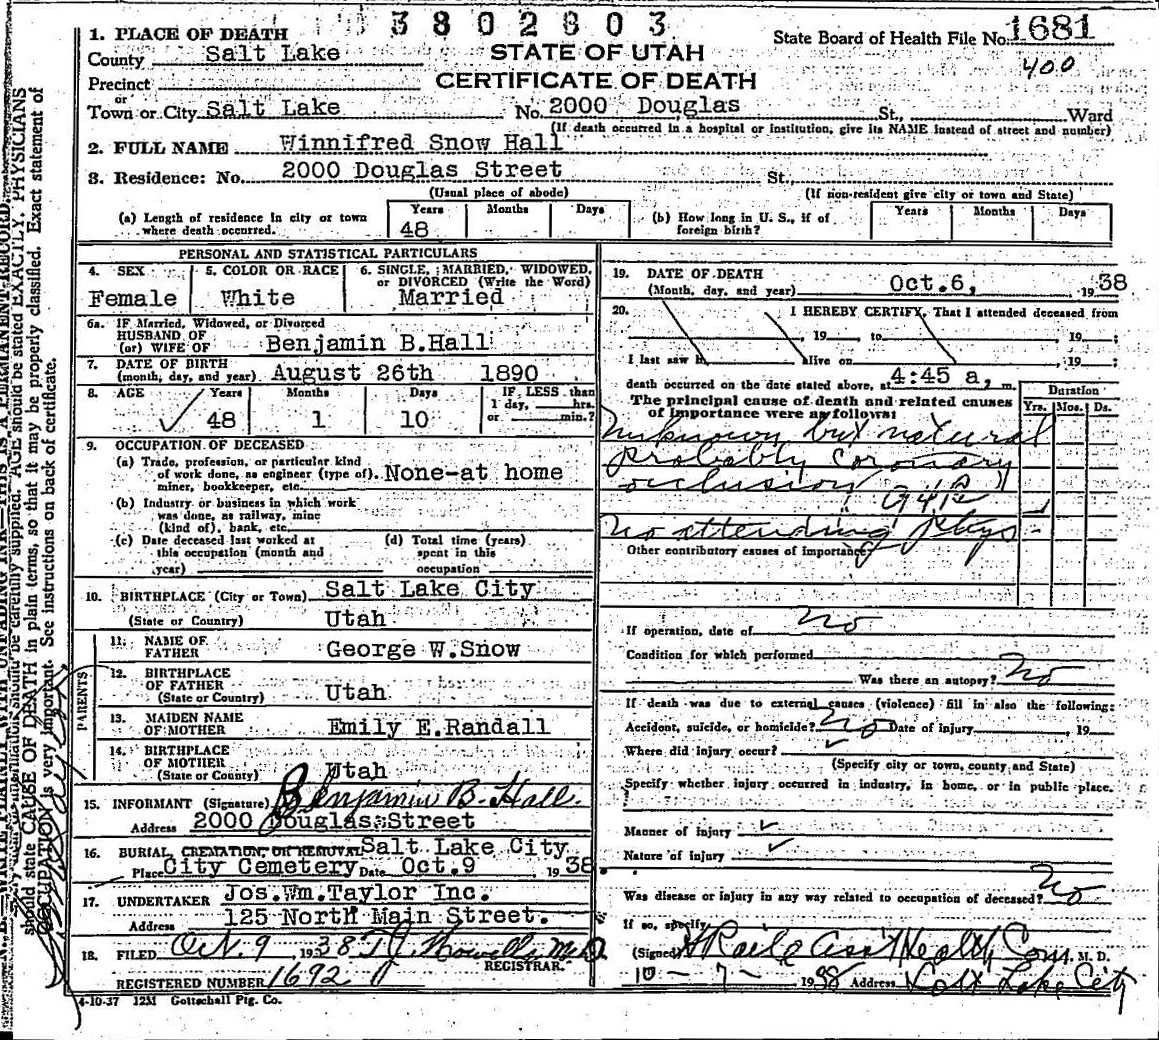 3802803
1. PLACE OF DEATH
County Salt Lake
STATE OF UTAH
CERTIFICATE OF DEATH
State Board of Health File No. 1681
400
Precinct
or
Town or City Salt Lake No. 2000 Douglas St., Ward
(If death occurred in a hospital or institution, give its NAME instead of street and number)
2. FULL NAME Winnifred Snow Hall
3. Residence: No. 2000 Douglas Street St.,
(Usual place of abode) (If non-resident give city or town and State)
(a) Length of residence in city or town where death occurred. Years 48 Months Days
(b) How long in U. S., if of foreign birth? Years Months Days
PERSONAL AND STATISTICAL PARTICULARS
4. SEX Female
5. COLOR OR RACE White
6. SINGLE, MARRIED, WIDOWED, or DIVORCED (Write the Word) Married
6a. IF Married, Widowed, or Divorced
HUSBAND OF
(or) WIFE OF Benjamin B.Hall
7. DATE OF BIRTH
(month, day, and year) August 26th 1890
8. AGE Years 48 Months 1 Days 10 IF LESS than 1 day, hrs. or min.?
9. OCCUPATION OF DECEASED
(a) Trade, profession, or particular kind
of work done, as engineer (type of). None-at home
miner, bookkeeper, etc.
(b) Industry or business in which work
was done, as railway, mine
(kind of), bank, etc.
(c) Date deceased last worked at this occupation (month and year)
(d) Total time (years) spent in this occupation
10. BIRTHPLACE (City or Town) Salt Lake City
(State or Country) Utah
PARENTS
11. NAME OF FATHER George W.Snow
12. BIRTHPLACE OF FATHER (State or Country) Utah
13. MAIDEN NAME OF MOTHER Emily E.Randall
14. BIRTHPLACE OF MOTHER (State or County) Utah
15. INFORMANT (Signature) Benjamin B. Hall
Address 2000 Douglas Street
16. BURIAL, CREMATION, OR REMOVAL Salt Lake City
Place City Cemetery Date Oct.9 1938
17. UNDERTAKER Jos.Wm.Taylor Inc.
Address 125 North Main Street.
18. FILED Oct. 9 1938
REGISTRAR
REGISTERED NUMBER 1692
4-10-37 12M Gottschall Ptg. Co.
19. DATE OF DEATH
(Month, day, and year) Oct.6, 1938
20. I HEREBY CERTIFY, That I attended deceased from
, 19 to , 19 ;
I last saw h alive on , 19 ;
death occurred on the date stated above, at 4:45 a, m.
The principal cause of death and related causes
of importance were as follows:
Duration
Yrs. Mos. Ds.
Unknown but natural
probably coronary
occlusion
No attending Phys
Other contributory causes of importance
If operation, date of No
Condition for which performed
Was there an autopsy? No
If death was due to external causes (violence) fill in also the following:
Accident, suicide, or homicide? No Date of injury , 19
Where did injury occur?
(Specify city or town, county and State)
Specify whether injury occurred in industry, in home, or in public place.
Manner of injury
Nature of injury
Was disease or injury in any way related to occupation of deceased? No
If so, specify
(Signed) Asst Health Com, M. D.
10 - 7 - 1938 Address Salt Lake City
should state CAUSE OF DEATH in plain terms, so that it may be properly classified. Exact statement of
OCCUPATION is very important. See instructions on back of certificate.